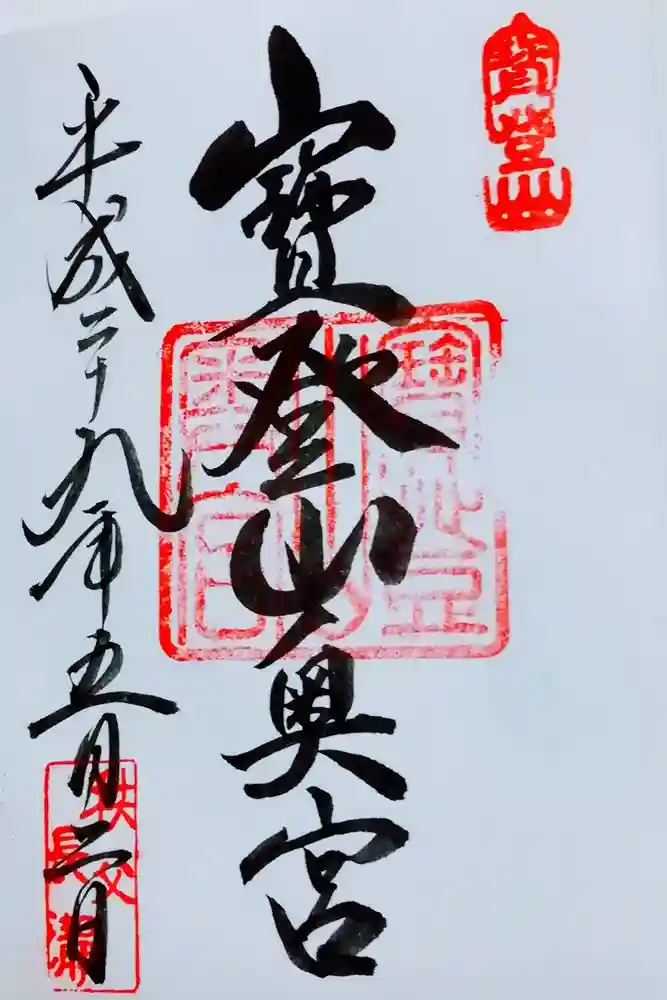 寶登山
寶登山奥宮
平成二十九年五月二日
秩父
長瀞